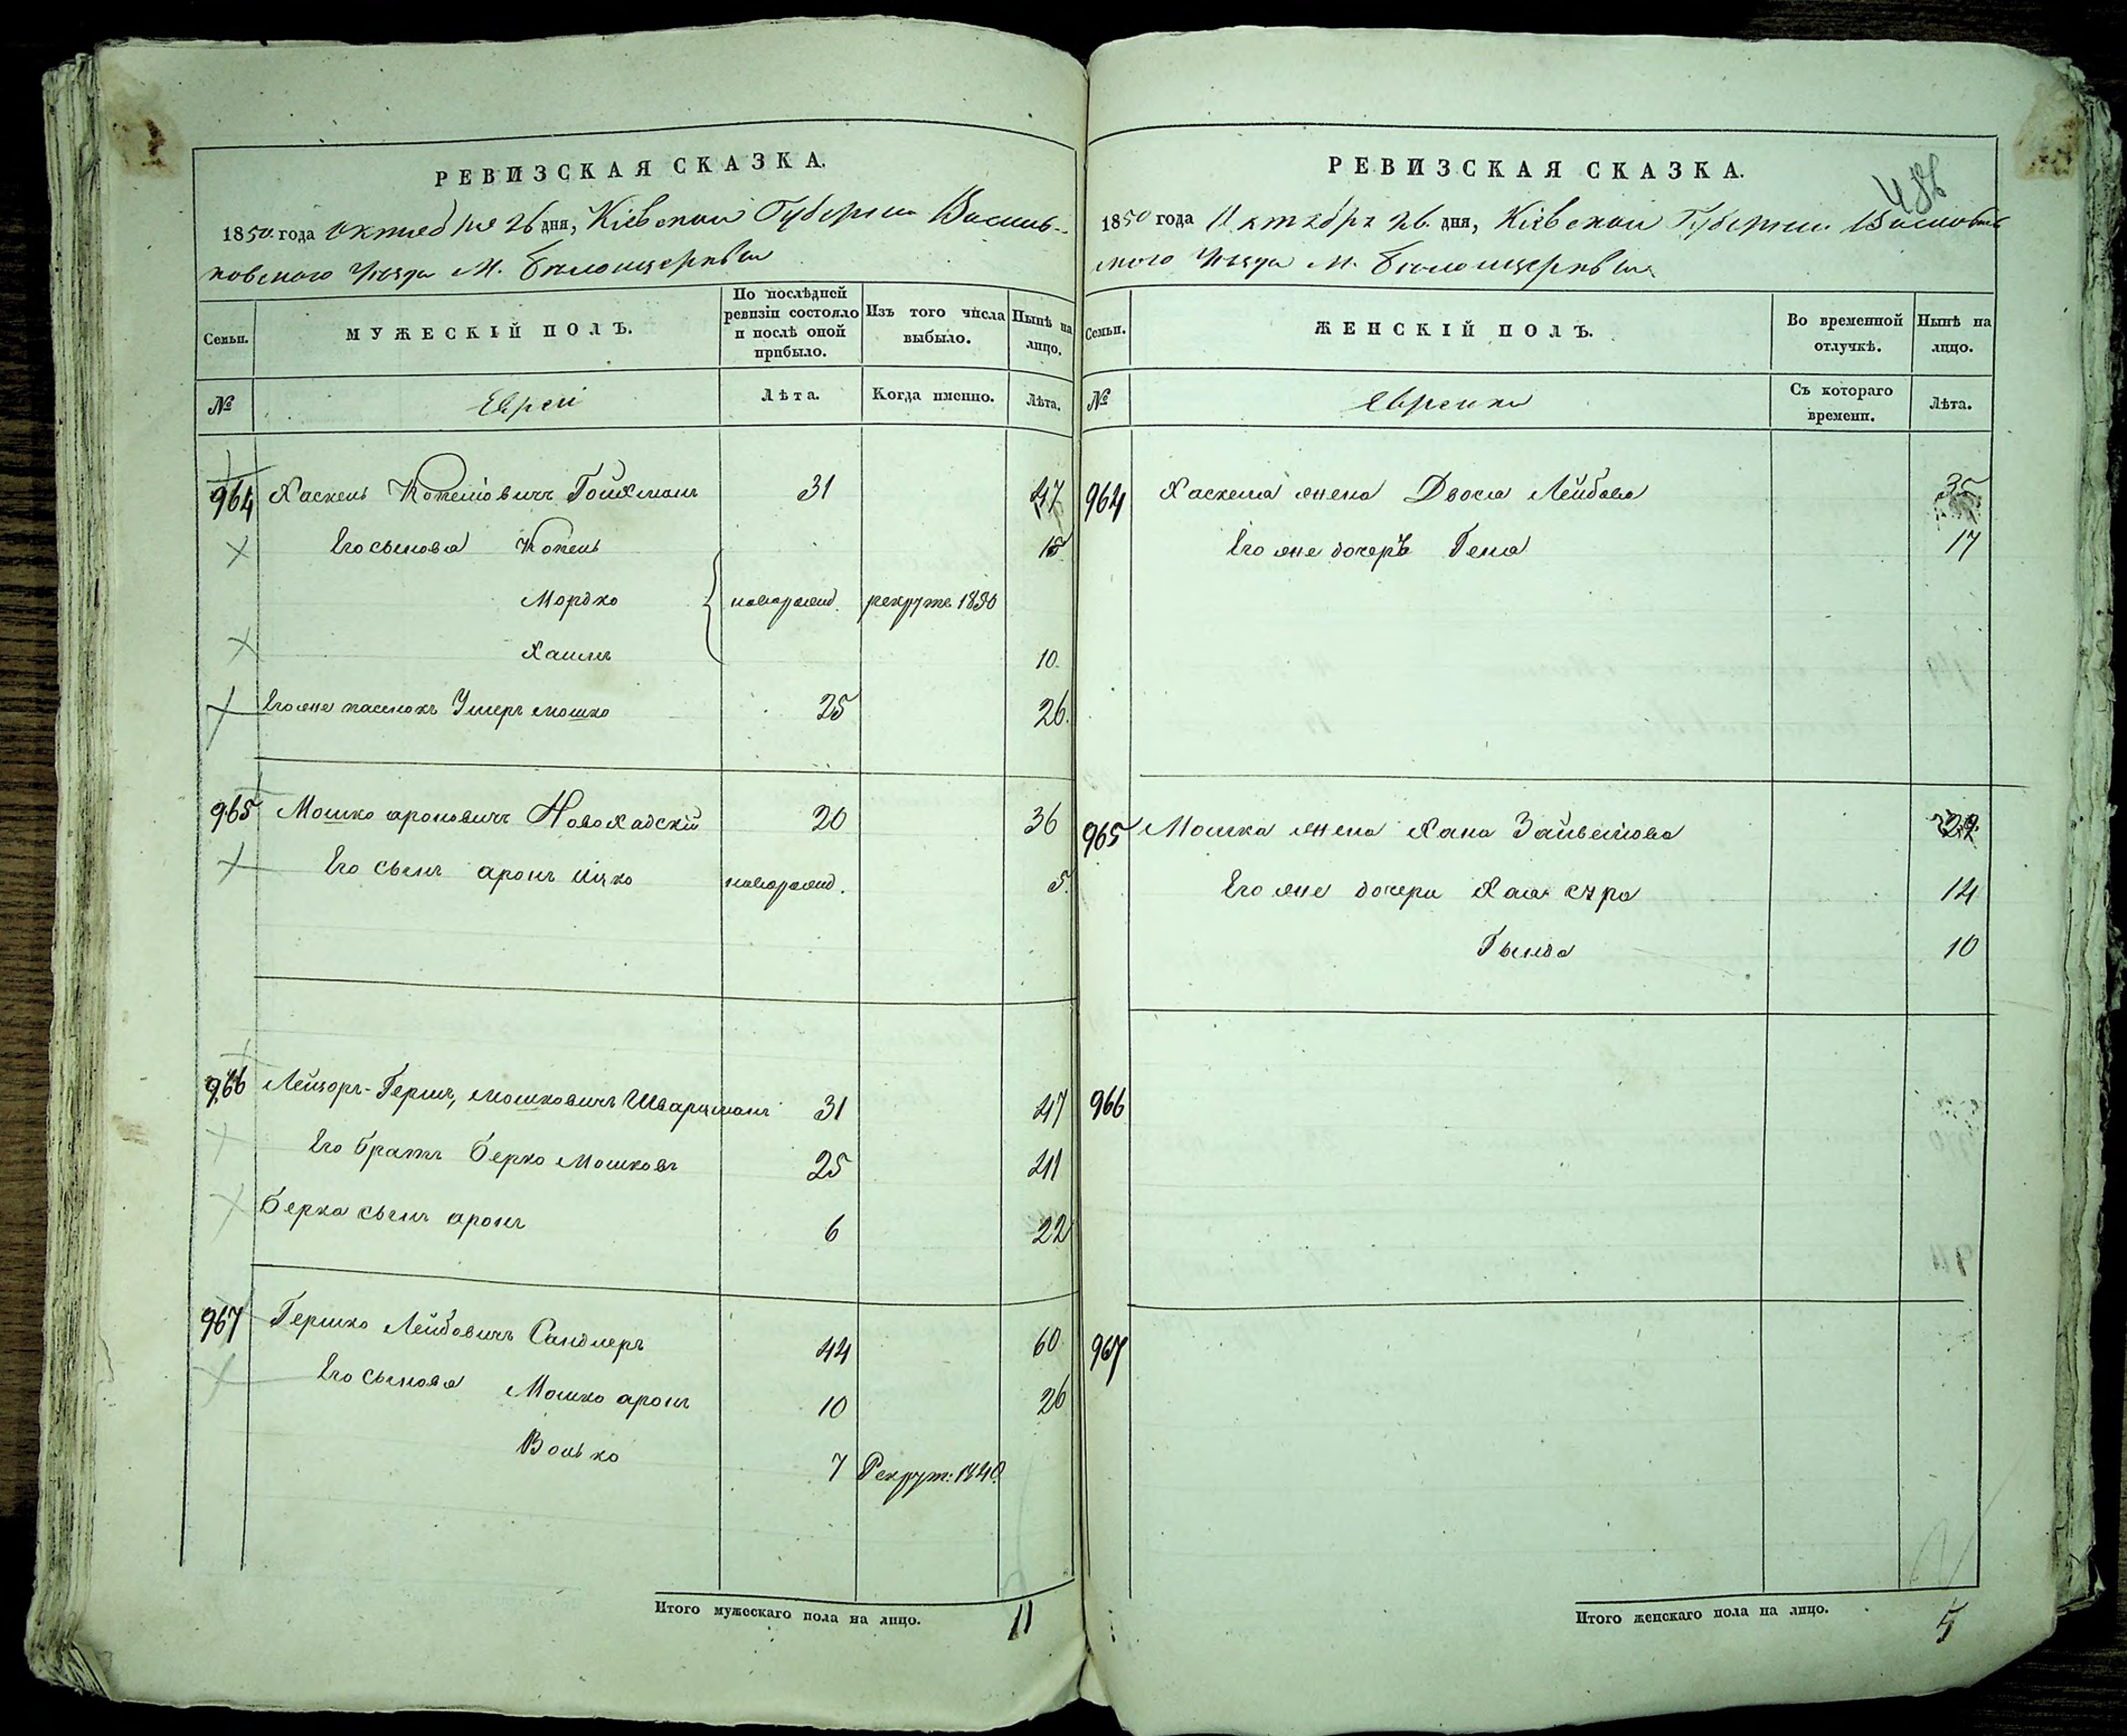 РЕВИЗСКАЯ СКАЗКА.
1850 года октября 26 дня, Кіевской Губерніи Василь-
ковского Уезда М. Белоцерквы
Семьи. МУЖЕСКІЙ ПОЛЪ. По послѣдней ревизіи состояло и послѣ оной прибыло. Изъ того числа выбыло. Нынѣ на лицо.
№ Евреи Лѣта. Когда именно. Лѣта.
964 Хаскель Копелiовичъ Гойхманъ 31 47
Его сыновья Копель 15
Мордко новорожд. рекруте 1850
Хаимъ 10.
Его же пасынокъ Ушеръ мошко 25 26.
965 Мошко ароновичъ Новохадскій 20 36
Его сынъ аронъ Ицко новорожд. 5.
966 Лейзоръ-Герш, мошковичъ Шварцманъ 31 47
Его братъ берко Мошковъ 25 41
берка сынъ аронъ 6 22
967 Гершко Лейбовичъ Сандлеръ 44 60
Его сыновья Мошко аронъ 10 26
Волько 7 Рекрут: 1840
Итого мужескаго пола на лицо. 11
РЕВИЗСКАЯ СКАЗКА.
486
1850 года Октября 26. дня, Кіевской Губерніи Васильков
ского Уезда М. Белоцерквы
Семьи. ЖЕНСКІЙ ПОЛЪ. Во временной отлучкѣ. Нынѣ на лицо.
№ Еврейки Съ котораго времени. Лѣта.
964 Хаскеля жена Двося Лейбова 35
Его же дочерь Геня 17
965 Мошка жена Хана Зайвелiова 29
Его же дочери Хая сура 14
Гвилда 10
966
967
Итого женскаго пола на лицо. 5